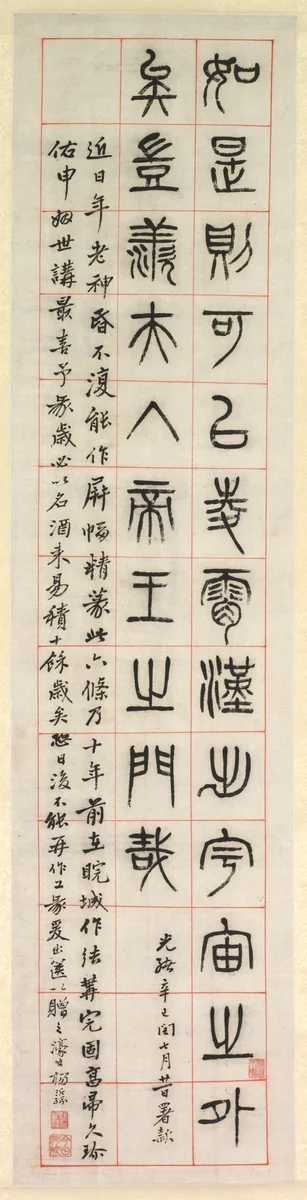 如是則可以凌霄漢出宇宙之外
矣豈羨夫入帝王之門哉
光緒辛巳閏七月廿日署款
近日年老神昏不復能作屏幅精篆此六條乃十年前在皖城作法葊完固高帚久珍
佑申姻世講最喜予篆歲必以名酒來易積十餘歲矣恐日後不能再作工篆爰出篋以贈之濠叟楊沂孫